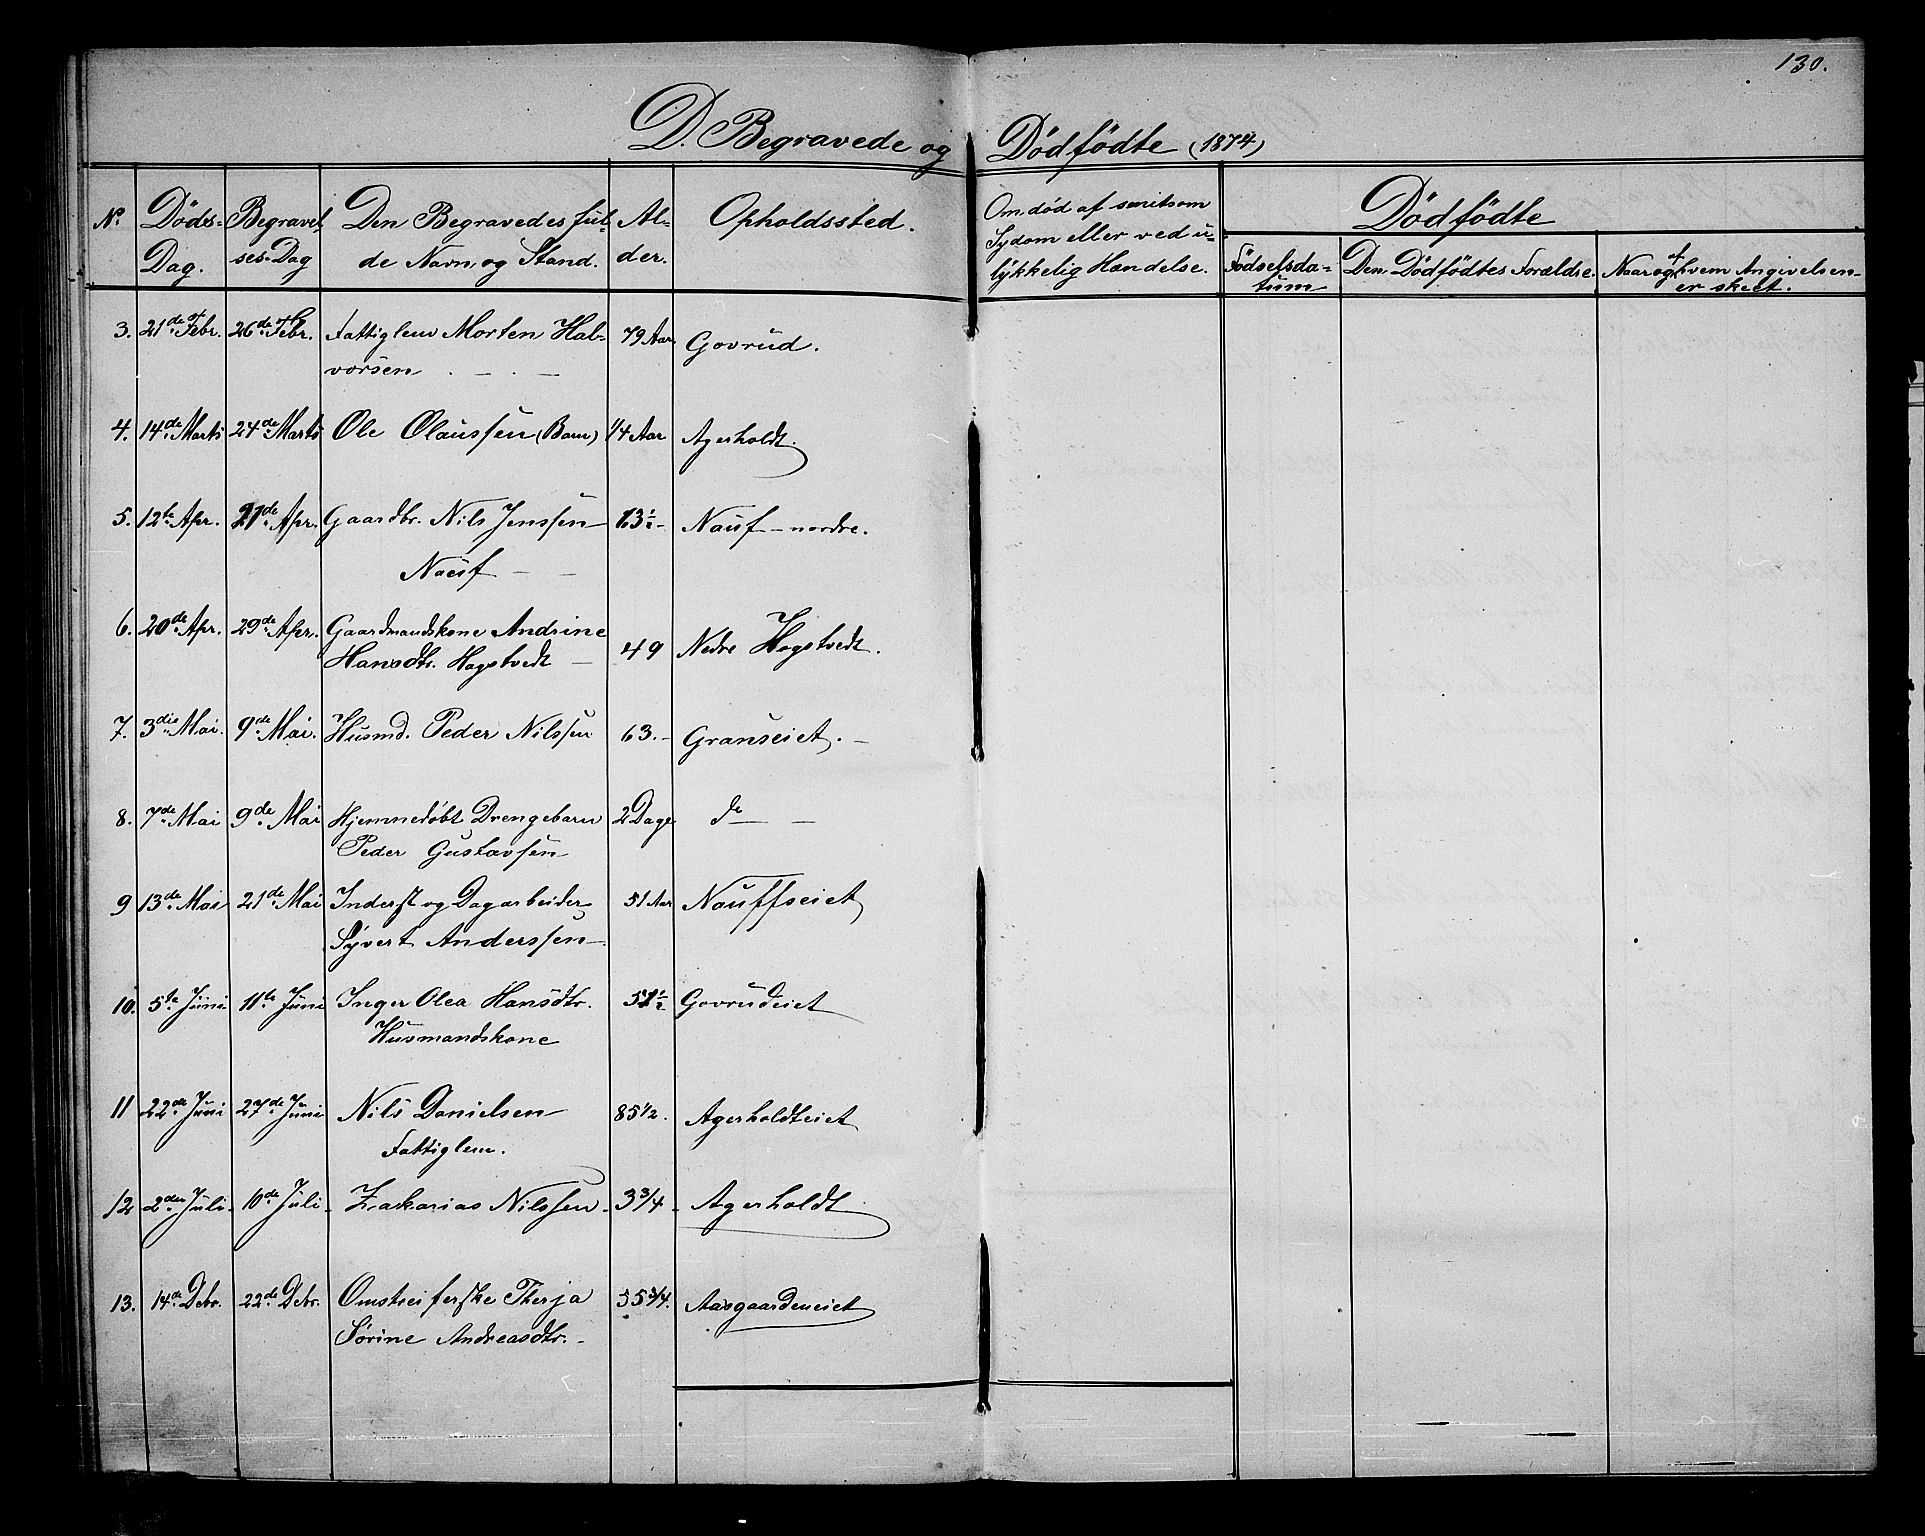 130.
D. Begravede og Dødfødte (1874)
No. Døds-Dag. Begravelses-Dag Den Begravedes fulde Navn, og Stand. Alder. Opholdssted. Om død af smitsom Sydom eller ved ulykkelig Hændelse. Dødfødte
Fødselsdatum Den Dødfødtes Forældre. Naar og f. hvem Angivelsen er skeet.
3. 21de Febr. 26de Febr. Fattiglem Morten Hal- 79 Aar Govrud.
vorsen
4. 14de Marts 24de Marts Ole Olaussen (Barn) 1/4 Aar Agerholdt.
5. 12te Apr. 21de Apr. Gaardbr. Nils Jenssen 63½ - Nauf - nordre.
Nauf
6. 20de Apr. 29de Apr. Gaardmandskone Andrine 49 Nedre Hogstvedt.
Hansdtr. Hogstvedt
7. 3die Mai. 9de Mai. Husmd. Peder Nilssen 63. - Granseiet. -
8. 7de Mai 9de Mai Hjemmedøbt Drengebarn 2 Dage do
Peder Gustavsen
9 13de Mai 21de Mai Inderst og Dagarbeider 51 Aar Nauffseiet
Syvert Anderssen
10. 5te Juni 11te Juni Inger Olea Hansdtr. 51½ Govrudeiet
Husmandskone
11 22de Juni 27de Juni Nils Danielsen 85 1/2. Agerholdteiet
Fattiglem.
12 2den Juli. 10de Juli. Zakarias Nilssen. 3 3/4 - Agerholdt
13. 14de Debr. 22de Debr. Omstreiferske Therja 55 3/4. Aasgaardeneiet
Sørine Andreasdtr. -